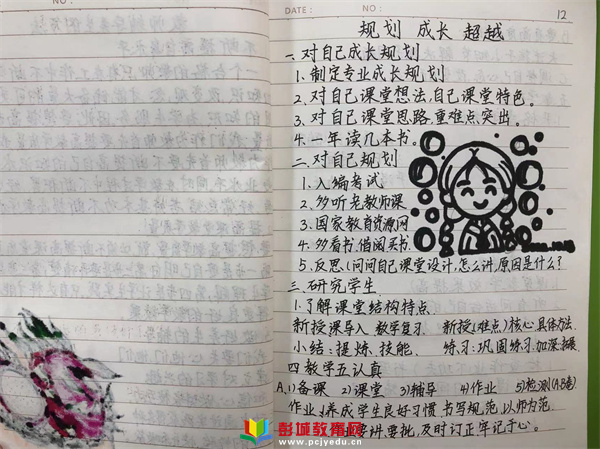 DATE: NO: 12
规划 成长 超越
一、对自己成长规划
1、制定专业成长规划
2、对自己课堂想法,自己课堂特色。
3、对自己课堂思路,重难点突出。
4、一年读几本书。
二、对自己规划
1、入编考试
2、多听老教师课
3、国家教育资源网
4、多看书,借阅买书。
5、反思(问问自己课堂设计,怎么讲,原因是什么?
三、研究学生
1、了解课堂结构特点.
新授课导入 教学复习 新授(难点)核心 具体方法.
小结:提炼、技能. 练习:巩固练习,加深
四 教学五认真
A、1)备课 2)课堂 3)辅导 4)作业 5)检测(AB卷)
作业:养成学生良好习惯 书写规范,以师为范.
讲,要批,及时订正,牢记于心。
彭城教育网
www.pcjyedu.cn